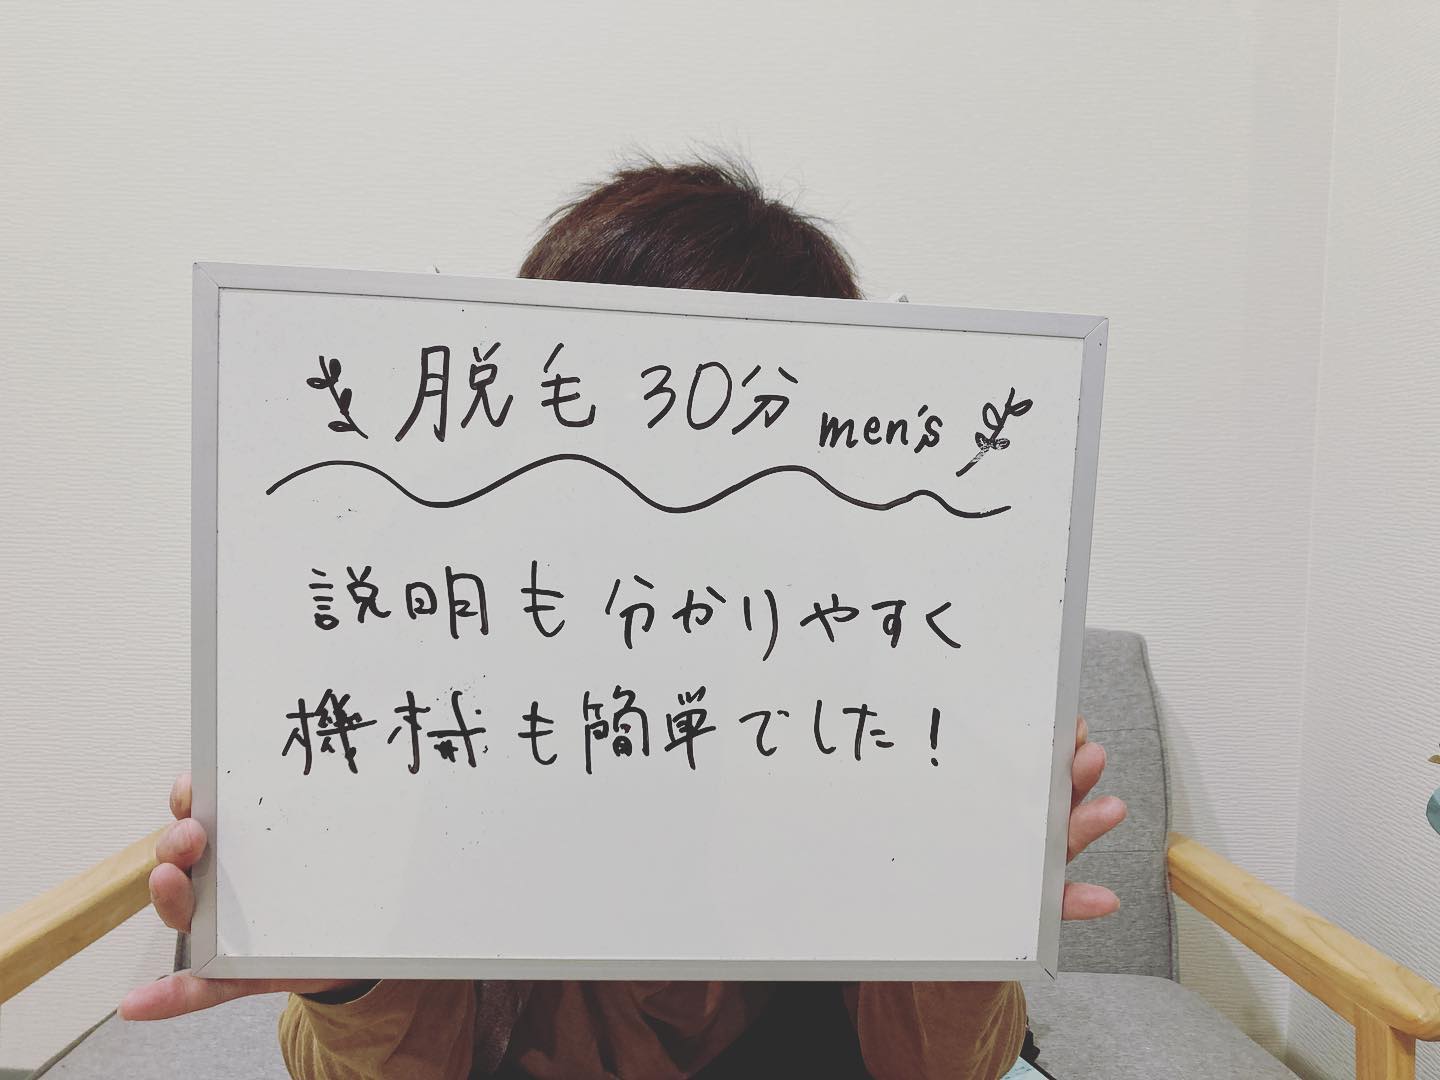 脱毛 30分 men's
説明も分かりやすく
機械も簡単でした!